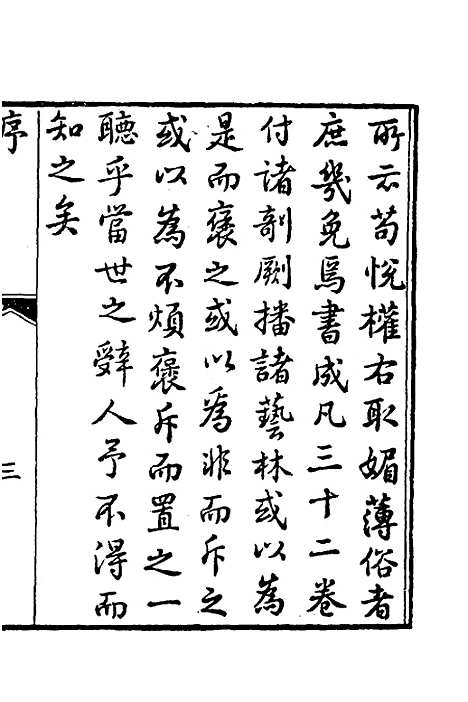 所云苟悅權右取媚薄俗者
庶幾免焉書成凡三十二卷
付諸剞劂播諸藝林或以為
是而褒之或以為非而斥之
或以為不煩褒斥而置之一
聽乎當世之辭人予不得而
知之矣
序
三